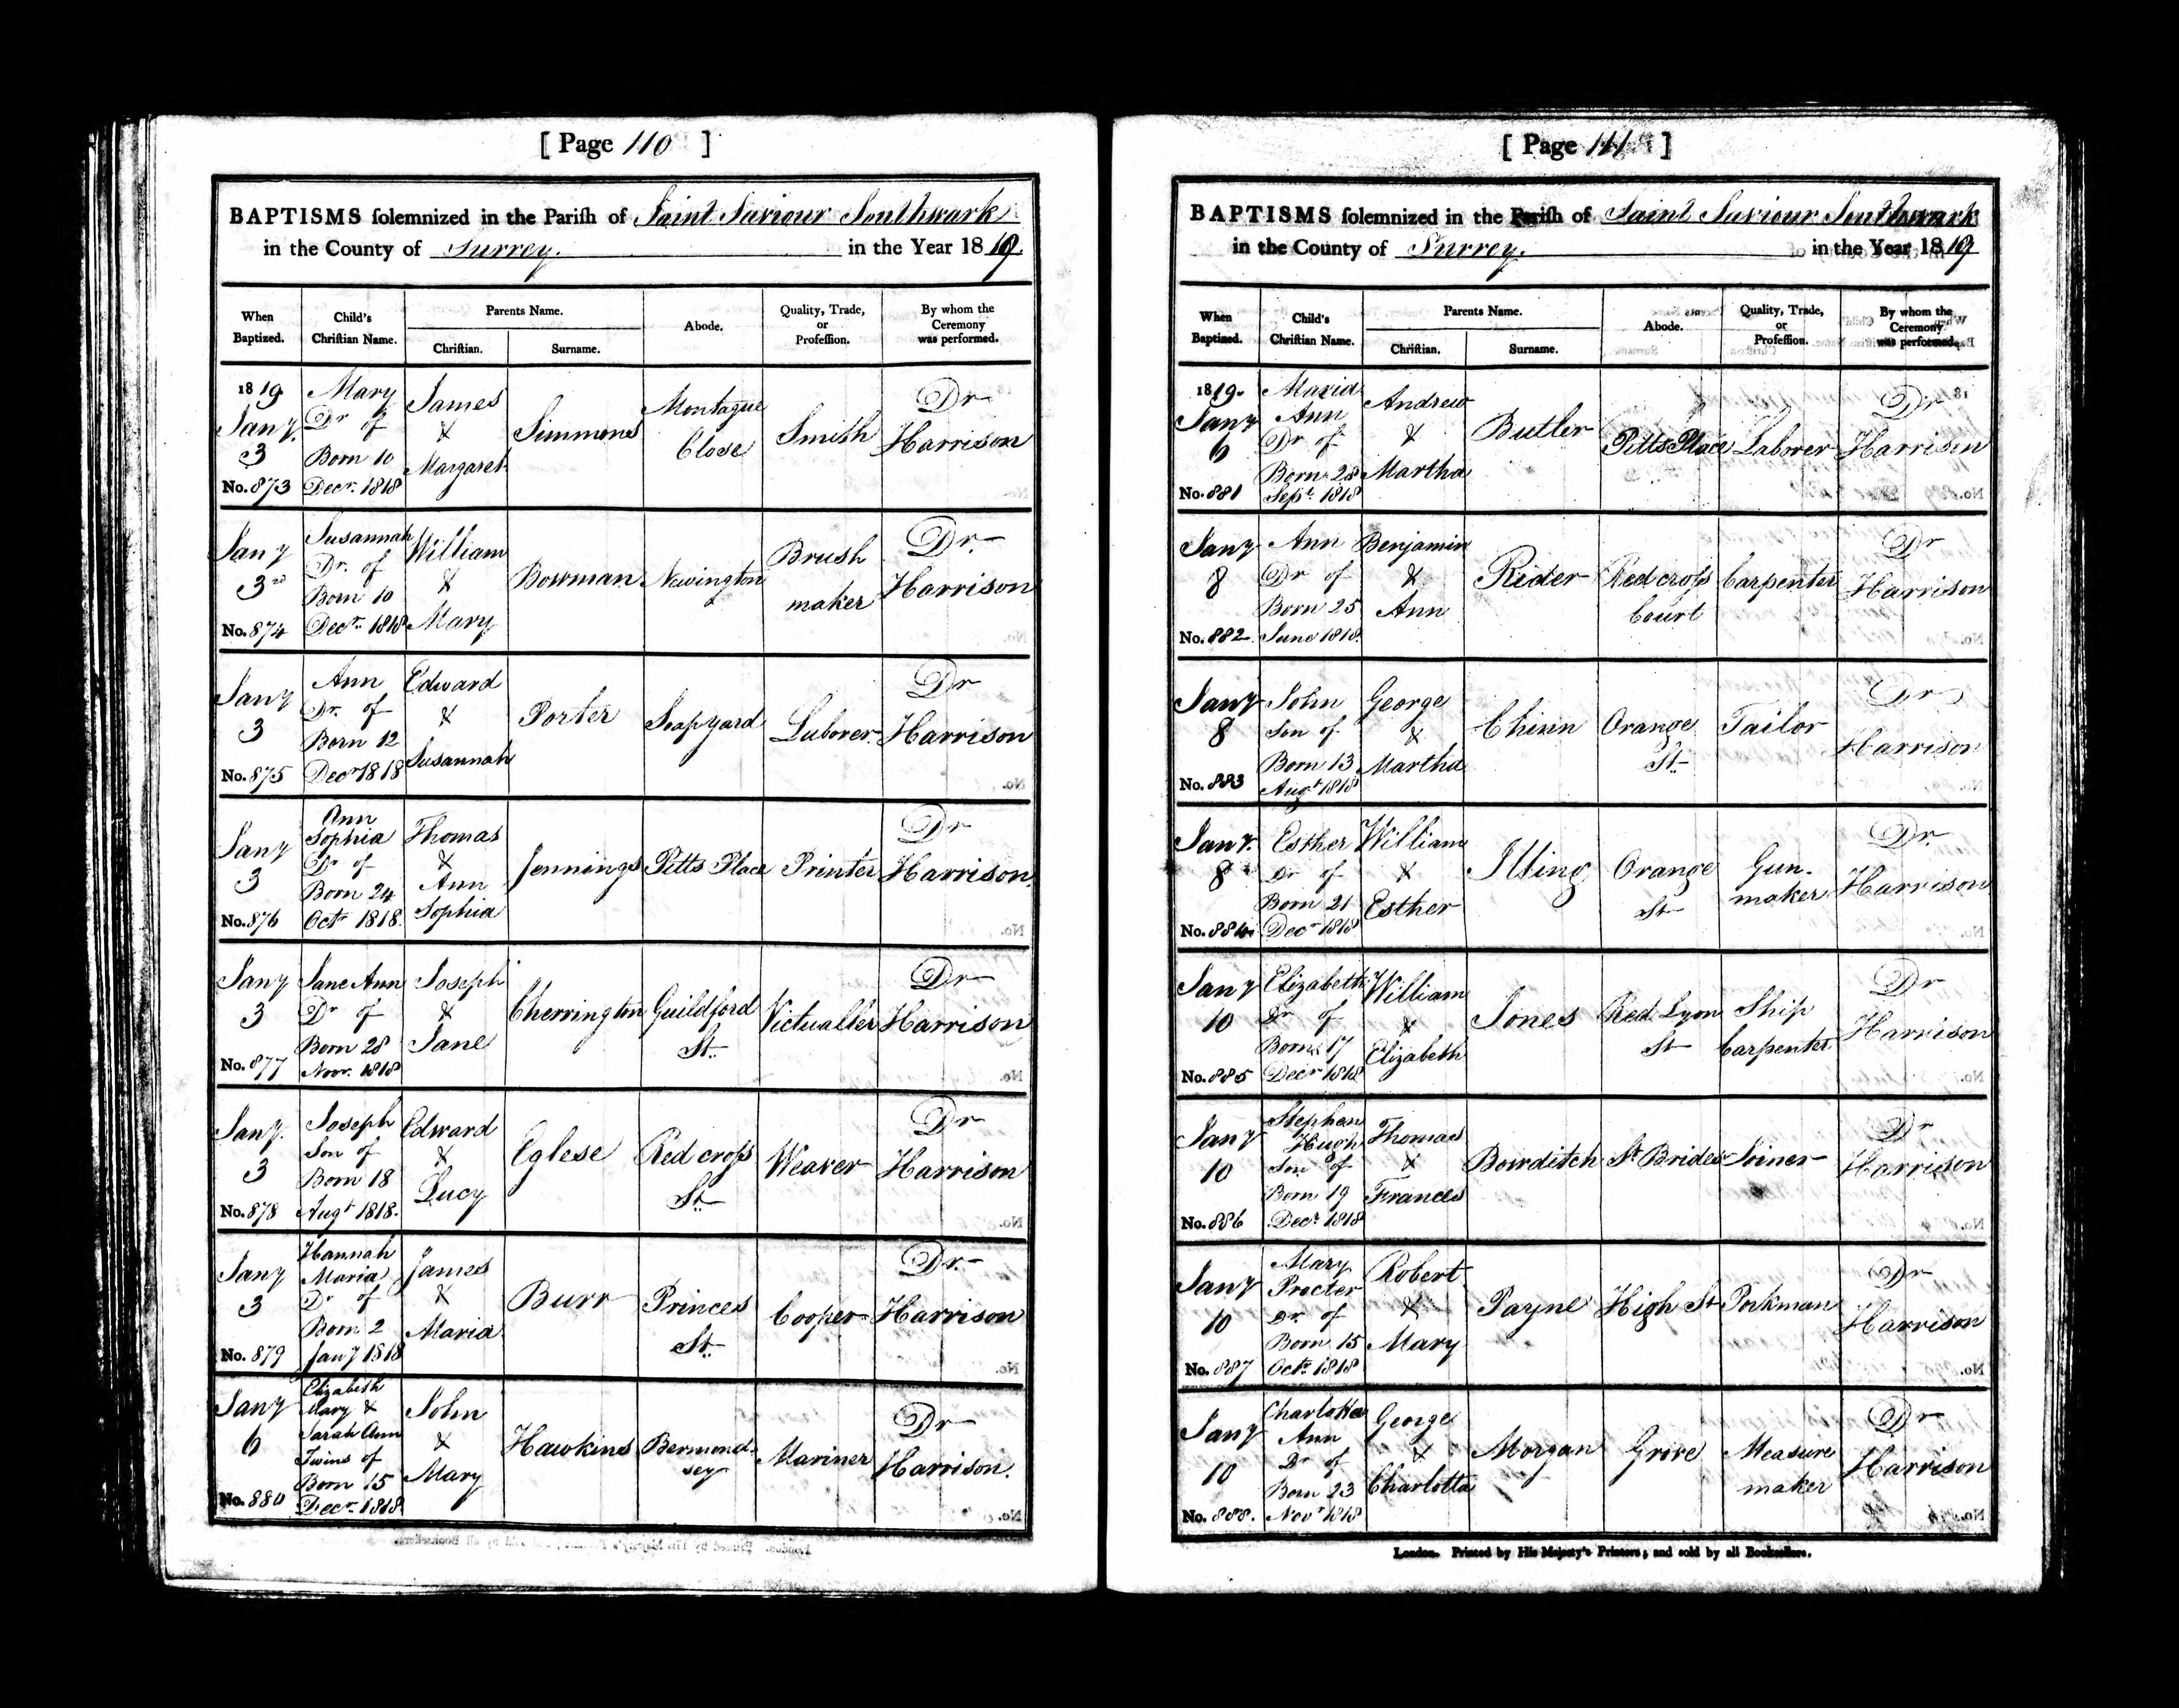 [ Page 110 ]
BAPTISMS solemnized in the Parish of Saint Saviour Southwark
in the County of Surrey. in the Year 1819.
When Baptized. Child's Christian Name. Parents Name. Christian. Surname. Abode. Quality, Trade, or Profession. By whom the Ceremony was performed.
1819 Jany. 3 No. 873 Mary Dr of Born 10 Decr. 1818 James & Margaret Simmons Montague Close Smith Dr Harrison
Jany 3rd No. 874 Susannah Dr. of Born 10 Decr. 1818 William & Mary Bowman Newington Brush maker Dr. Harrison
Jany 3 No. 875 Ann Dr. of Born 12 Decr 1818 Edward & Susannah Porter Soapyard Laborer Dr Harrison
Jany 3 No. 876 Ann Sophia Dr of Born 24 Octr 1818. Thomas & Ann Sophia Jennings Pitts Place Printer Dr Harrison.
Jany 3 No. 877 Jane Ann Dr of Born 28 Novr. 1818 Joseph & Jane Cherrington Guildford St. Victualler Dr Harrison
Jany. 3 No. 878 Joseph Son of Born 18 Augt 1818. Edward & Lucy Eglese Red cross St. Weaver Dr Harrison
Jany 3 No. 879 Hannah Maria Dr of Born 2 Jany 1818 James & Maria Burr Princes St. Cooper Dr. Harrison
Jany 6 No. 880 Elizabeth Mary & Sarah Ann Twins of Born 15 Decr. 1818 John & Mary Hawkins Bermondsey Mariner Dr Harrison.
[ Page 111 ]
BAPTISMS solemnized in the Parish of Saint Saviour Southwark
in the County of Surrey. in the Year 1819
When Baptized. Child's Christian Name. Parents Name. Christian. Surname. Abode. Quality, Trade, or Profession. By whom the Ceremony was performed.
1819. Jany 6 No. 881 Maria Ann Dr of Born 28 Sept. 1818 Andrew & Martha Butler Pitts Place Laborer Dr Harrison
Jany 8 No. 882 Ann Dr of Born 25 June 1818. Benjamin & Ann Rider Red cross Court Carpenter Dr Harrison
Jany 8 No. 883 John Son of Born 13 Augt 1818 George & Martha Chinn Orange St. Tailor Dr Harrison
Jany. 8 No. 884 Esther Dr of Born 21 Decr 1818 William & Esther Illing Orange St Gun-maker Dr. Harrison
Jany 10 No. 885 Elizabeth Dr of Born 17 Decr 1818 William & Elizabeth Jones Red Lyon St Ship Carpenter Dr Harrison
Jany 10 No. 886 Stephen Hugh Son of Born 19 Decr. 1818 Thomas & Frances Bowditch St Brides Joiner Dr Harrison
Jany 10 No. 887 Mary Procter Dr. of Born 15 Octr. 1818 Robert & Mary Payne High St Porkman Dr Harrison
Jany 10 No. 888. Charlotta Ann Dr of Born 23 Novr 1818 George & Charlotta Morgan Grove Measure maker Dr Harrison
London. Printed by His Majesty's Printers; and sold by all Booksellers.